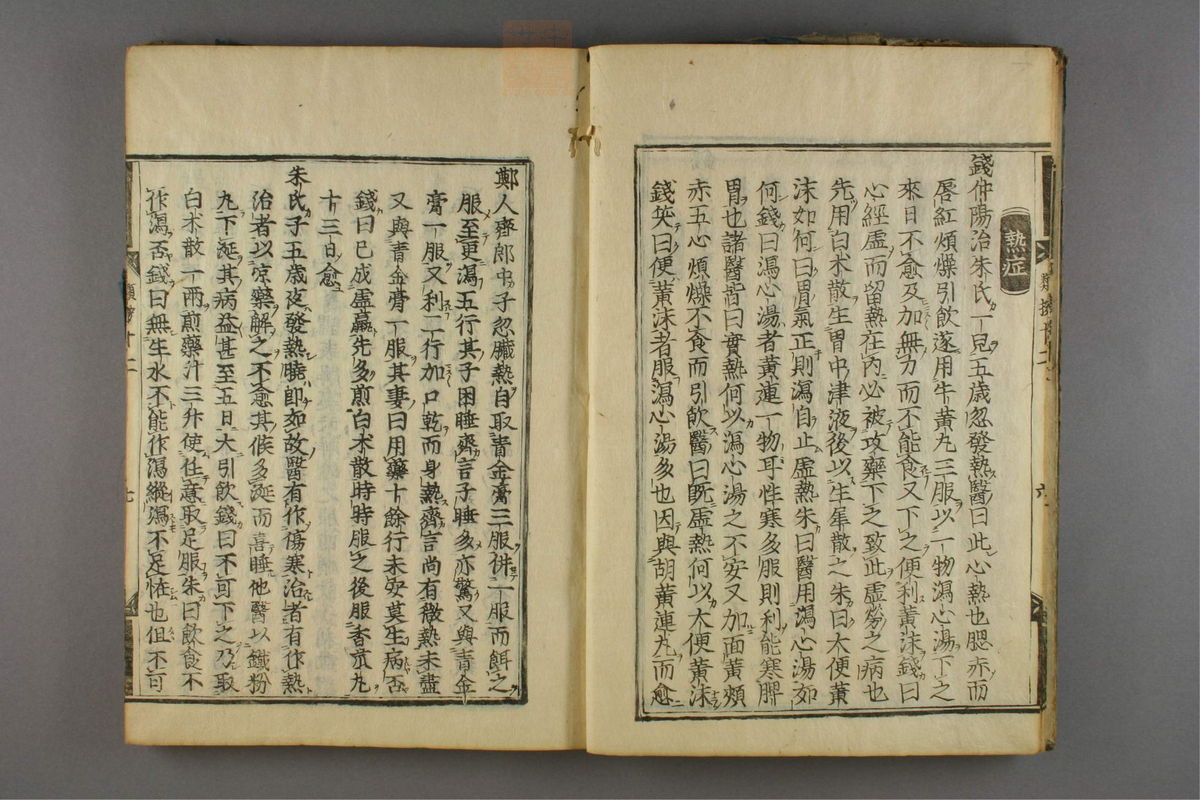 熱症
錢仲陽治朱氏一兒五歲忽發熱醫曰此心熱也腮赤而
唇紅煩燥引飲遂用牛黃丸三服以一物瀉心湯下之
來日不愈及加無力而不能食又下之便利黃沫錢曰
心經虛而留熱在內必被攻藥下之致此虛勞之病也
先用白朮散生胃中津液後以生犀散之朱曰大便黃
沫如何曰胃氣正則瀉自止虛熱朱曰醫用瀉心湯如
何錢曰瀉心湯者黃連一物耳性寒多服則利能寒脾
胃也諸醫皆曰實熱何以瀉心湯之不安又加面黃頰
赤五心煩燥不食而引飲醫曰既虛熱何以大便黃沫
錢笑曰便黃沫者服瀉心湯多也因與胡黃連丸而愈
鄭人齊郎中子忽臟熱自取青金膏三服併一服而餌之
服至更瀉五行其子困睡齊言子睡多亦驚又與青金
膏一服又利一行加口乾而身熱齊言尚有微熱未盡
又與青金膏一服其妻曰用藥十餘行未安莫生病否
錢曰已成虛羸先多煎白朮散時時服之後服香苽丸
十三日愈
朱氏子五歲夜發熱曉即如故醫有作傷寒治者有作熱
治者以凉藥解之不愈其候多涎而喜睡他醫以鐵粉
丸下涎其病益甚至五日大引飲錢曰不可下之乃取
白朮散一兩煎藥汁三升使任意取足服朱曰飲食不
作瀉否錢曰無生水不能作瀉縱瀉不足怪也但不可
七